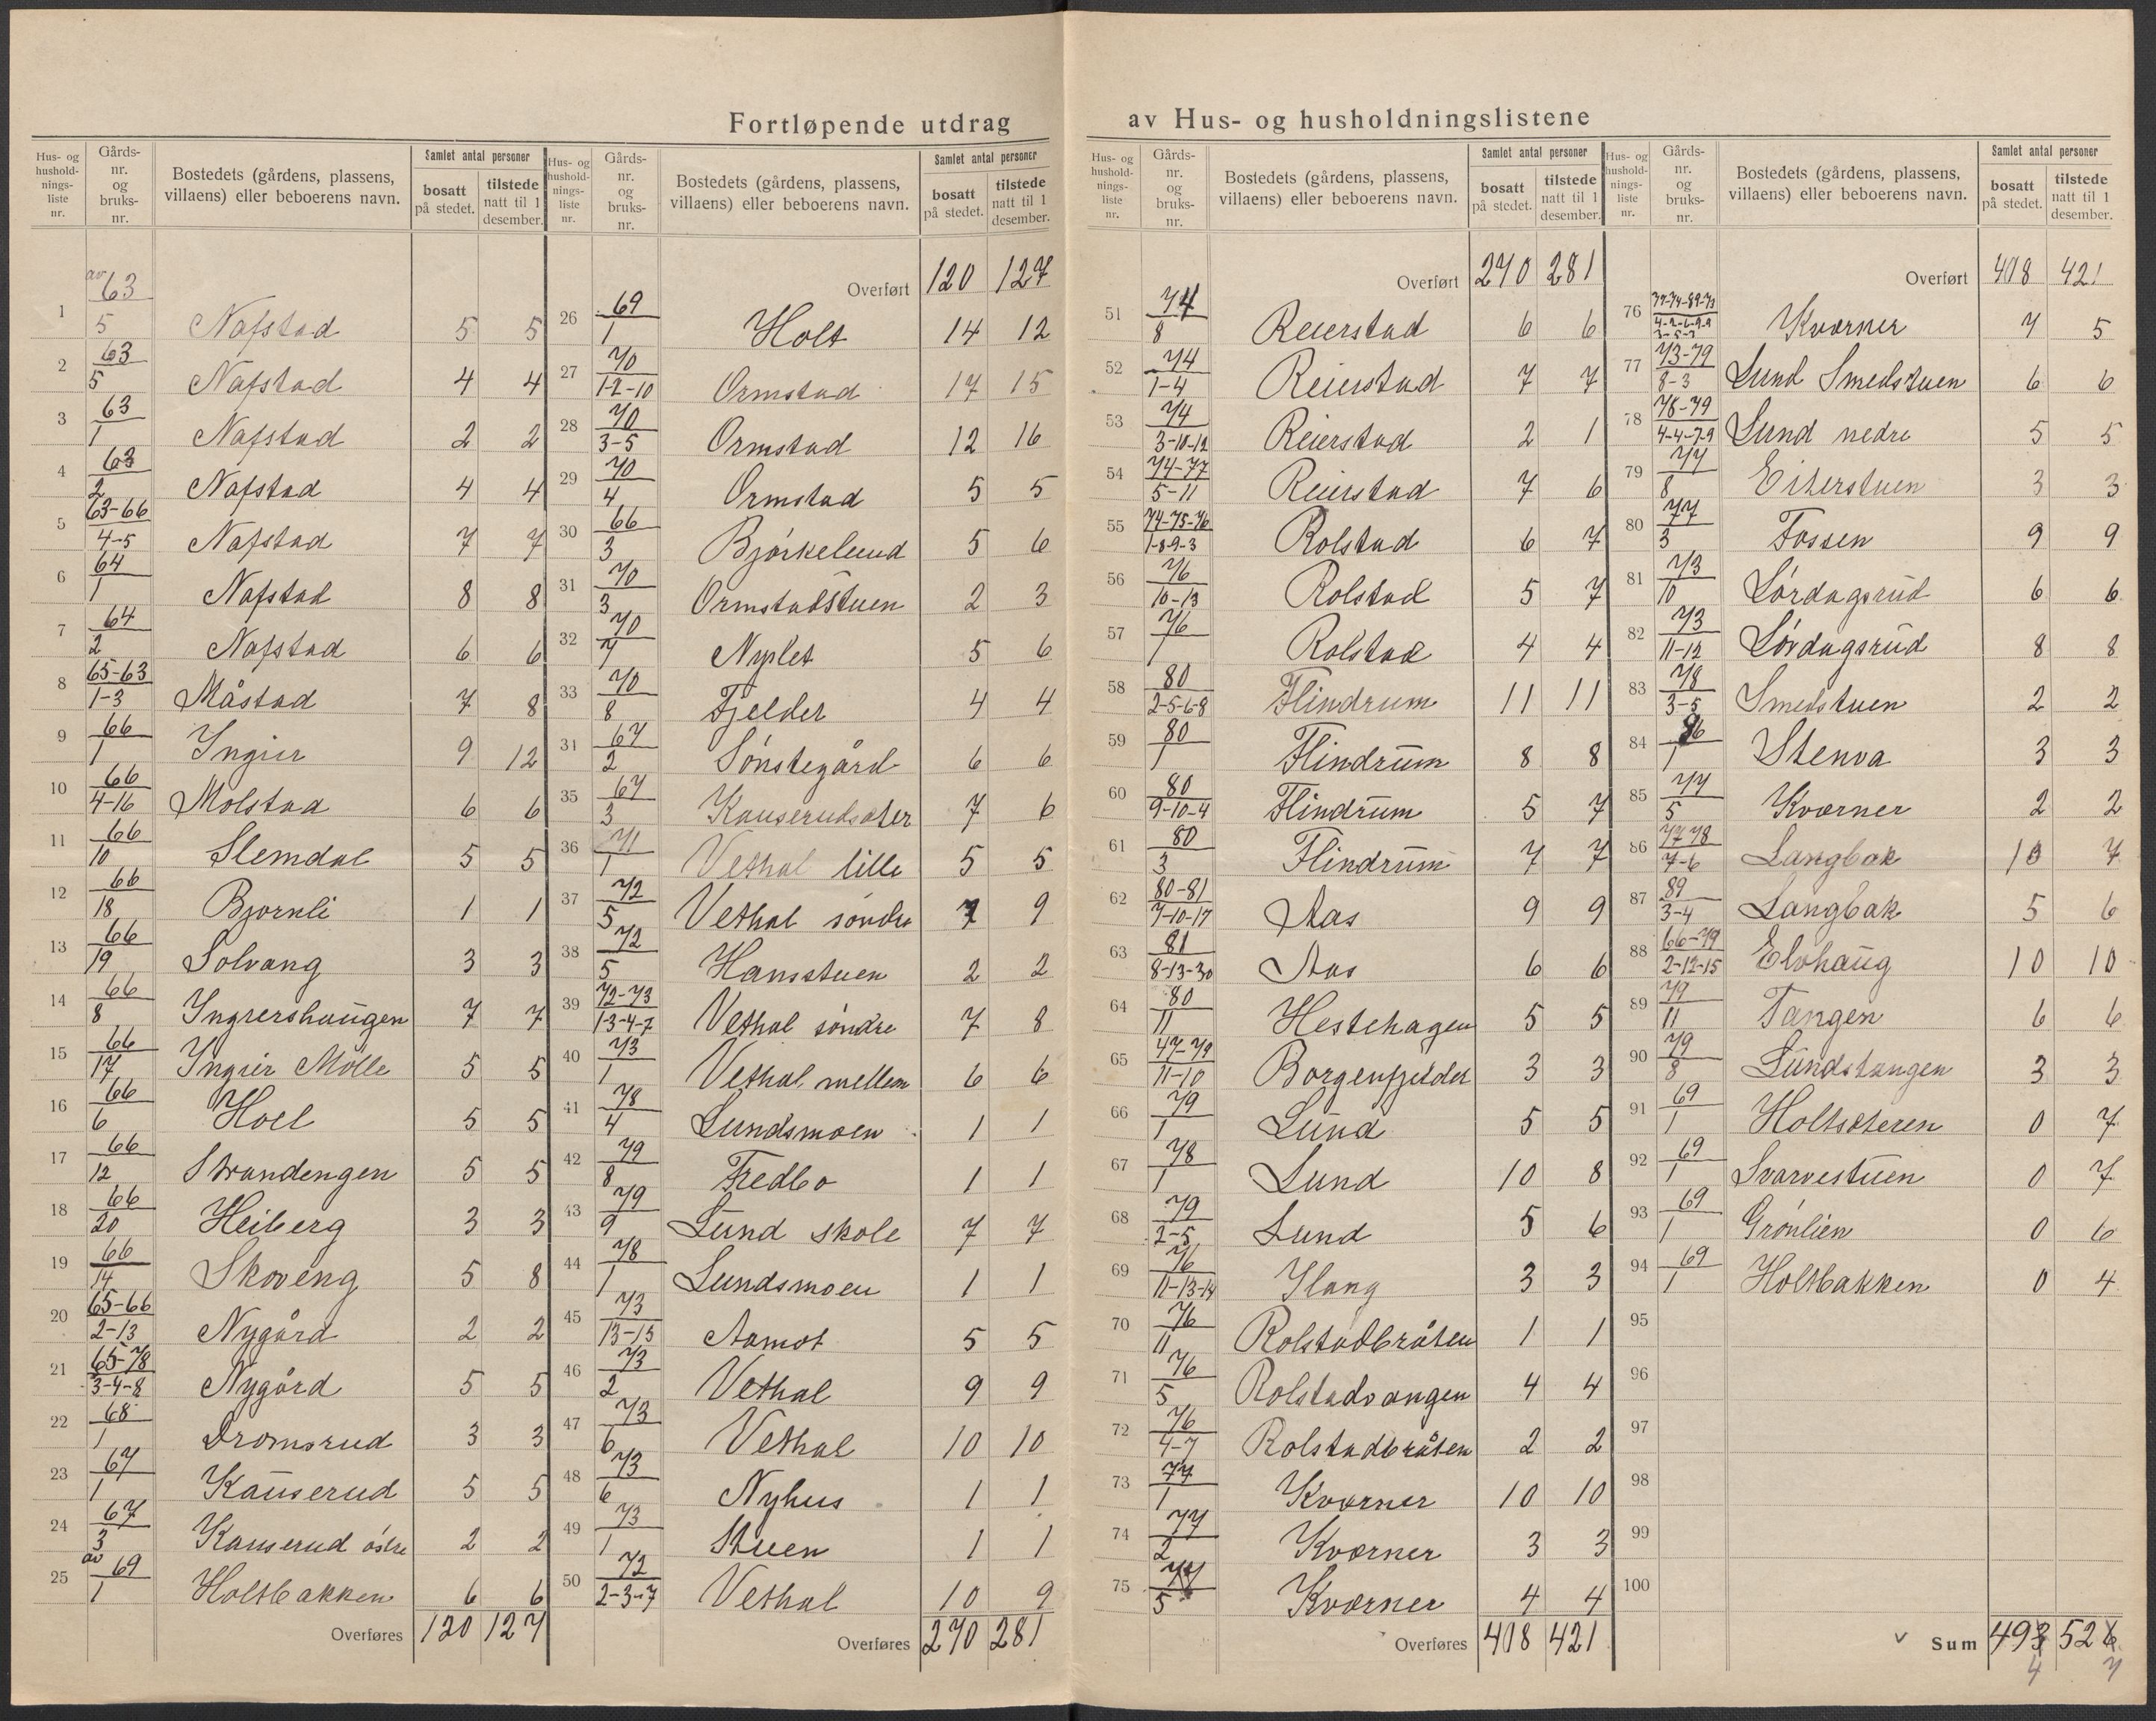 Fortløpende utdrag av Hus- og husholdningslistene
Hus- og hushold-nings-liste nr. | Gårds-nr. og bruks-nr. | Bostedets (gårdens, plassens, villaens) eller beboerens navn. | Samlet antal personer bosatt på stedet. | tilstede natt til 1 desember.
1 | av 63/5 | Nafstad | 5 | 5
2 | 63/5 | Nafstad | 4 | 4
3 | 63/1 | Nafstad | 2 | 2
4 | 63/2 | Nafstad | 4 | 4
5 | 63-66/4-5 | Nafstad | 7 | 7
6 | 64/1 | Nafstad | 8 | 8
7 | 64/2 | Nafstad | 6 | 6
8 | 65-63/1-3 | Måstad | 7 | 8
9 | 66/1 | Ingier | 9 | 12
10 | 66/4-16 | Molstad | 6 | 6
11 | 66/10 | Slemdal | 5 | 5
12 | 66/18 | Bjørnli | 1 | 1
13 | 66/19 | Solvang | 3 | 3
14 | 66/8 | Ingiershaugen | 7 | 7
15 | 66/17 | Ingier Mølle | 5 | 5
16 | 66/6 | Hoel | 5 | 5
17 | 66/12 | Strandengen | 5 | 5
18 | 66/20 | Heiberg | 3 | 3
19 | 66/14 | Skoveng | 5 | 8
20 | 65-66/2-13 | Nygård | 2 | 2
21 | 65-78/3-4-8 | Nygård | 5 | 5
22 | 68/1 | Dromsrud | 3 | 3
23 | 67/1 | Kauserud | 5 | 5
24 | 67/3 | Kauserud østre | 2 | 2
25 | av 69/1 | Holtbakken | 6 | 6
Overføres 120 127
Hus- og hushold-nings-liste nr. | Gårds-nr. og bruks-nr. | Bostedets (gårdens, plassens, villaens) eller beboerens navn. | Samlet antal personer bosatt på stedet. | tilstede natt til 1 desember.
Overført 120 127
26 | 69/1 | Holt | 14 | 12
27 | 70/1-2-10 | Ormstad | 17 | 15
28 | 70/3-5 | Ormstad | 12 | 16
29 | 70/4 | Ormstad | 5 | 5
30 | 66/3 | Bjørkelund | 5 | 6
31 | 70/3 | Ormstadstuen | 2 | 3
32 | 70/7 | Nyslet | 5 | 6
33 | 70/8 | Fjelder | 4 | 4
31 | 67/2 | Sønstegård | 6 | 6
35 | 67/3 | Kauserudsæter | 7 | 6
36 | 71/1 | Vethal lille | 5 | 5
37 | 72/5 | Vethal søndre | 7 | 9
38 | 72/5 | Hansstuen | 2 | 2
39 | 72-73/1-3-4-7 | Vethal søndre | 7 | 8
40 | 73/1 | Vethal mellem | 6 | 6
41 | 78/4 | Lundsmoen | 1 | 1
42 | 79/8 | Fredbo | 1 | 1
43 | 79/9 | Lund skole | 7 | 7
44 | 78/1 | Lundsmoen | 1 | 1
45 | 73/13-15 | Aamot | 5 | 5
46 | 73/2 | Vethal | 9 | 9
47 | 73/6 | Vethal | 10 | 10
48 | 73/6 | Nyhus | 1 | 1
49 | 73/1 | Stuen | 1 | 1
50 | 72/2-3-7 | Vethal | 10 | 9
Overføres 270 281
Hus- og hushold-nings-liste nr. | Gårds-nr. og bruks-nr. | Bostedets (gårdens, plassens, villaens) eller beboerens navn. | Samlet antal personer bosatt på stedet. | tilstede natt til 1 desember.
Overført 270 281
51 | 74/8 | Reierstad | 6 | 6
52 | 74/1-4 | Reierstad | 7 | 7
53 | 74/3-10-12 | Reierstad | 2 | 1
54 | 74-77/5-11 | Reierstad | 7 | 6
55 | 74-75-76/1-8-9-3 | Rolstad | 6 | 7
56 | 76/10-13 | Rolstad | 5 | 7
57 | 76/1 | Rolstad | 4 | 4
58 | 80/2-5-6-8 | Flindrum | 11 | 11
59 | 80/1 | Flindrum | 8 | 8
60 | 80/9-10-4 | Flindrum | 5 | 7
61 | 80/3 | Flindrum | 7 | 7
62 | 80-81/7-10-17 | Aas | 9 | 9
63 | 81/8-13-30 | Aas | 6 | 6
64 | 80/11 | Hestehagen | 5 | 5
65 | 47-79/11-10 | Borgenfjeldet | 3 | 3
66 | 79/1 | Lund | 5 | 5
67 | 78/1 | Lund | 10 | 8
68 | 79/2-5 | Lund | 5 | 6
69 | 76/11-13-14 | Ilang | 3 | 3
70 | 76/11 | Rolstadbråten | 1 | 1
71 | 76/5 | Rolstadvangen | 4 | 4
72 | 76/4-7 | Rolstadbråten | 2 | 2
73 | 77/1 | Kværner | 10 | 10
74 | 77/2 | Kværner | 3 | 3
75 | 77/5 | Kværner | 4 | 4
Overføres 408 421
Hus- og hushold-nings-liste nr. | Gårds-nr. og bruks-nr. | Bostedets (gårdens, plassens, villaens) eller beboerens navn. | Samlet antal personer bosatt på stedet. | tilstede natt til 1 desember.
Overført 408 421
76 | Kværner | 7 | 5
77 | 73-79/8-3 | Lund Smedstuen | 6 | 6
78 | 78-79/4-4-7-9 | Lund nedre | 5 | 5
79 | 77/8 | Eiterstuen | 3 | 3
80 | 77/3 | Fossen | 9 | 9
81 | 73/10 | Lørdagsrud | 6 | 6
82 | 73/11-12 | Lørdagsrud | 8 | 8
83 | 78/3-5 | Smedstuen | 2 | 2
84 | 86/1 | Stenva | 3 | 3
85 | 77/5 | Kværner | 2 | 2
86 | 77 78/7-6 | Langbak | 10 | 7
87 | 89/3-4 | Langbak | 5 | 6
88 | 66-79/2-12-15 | Elvhaug | 10 | 10
89 | 79/11 | Tangen | 6 | 6
90 | 79/8 | Lundstangen | 3 | 3
91 | 69/1 | Holtsæteren | 0 | 7
92 | 69/1 | Svarvestuen | 0 | 7
93 | 69/1 | Grønlien | 0 | 6
94 | 69/1 | Holtbakken | 0 | 4
95
96
97
98
99
100
Sum 493 526
4 7